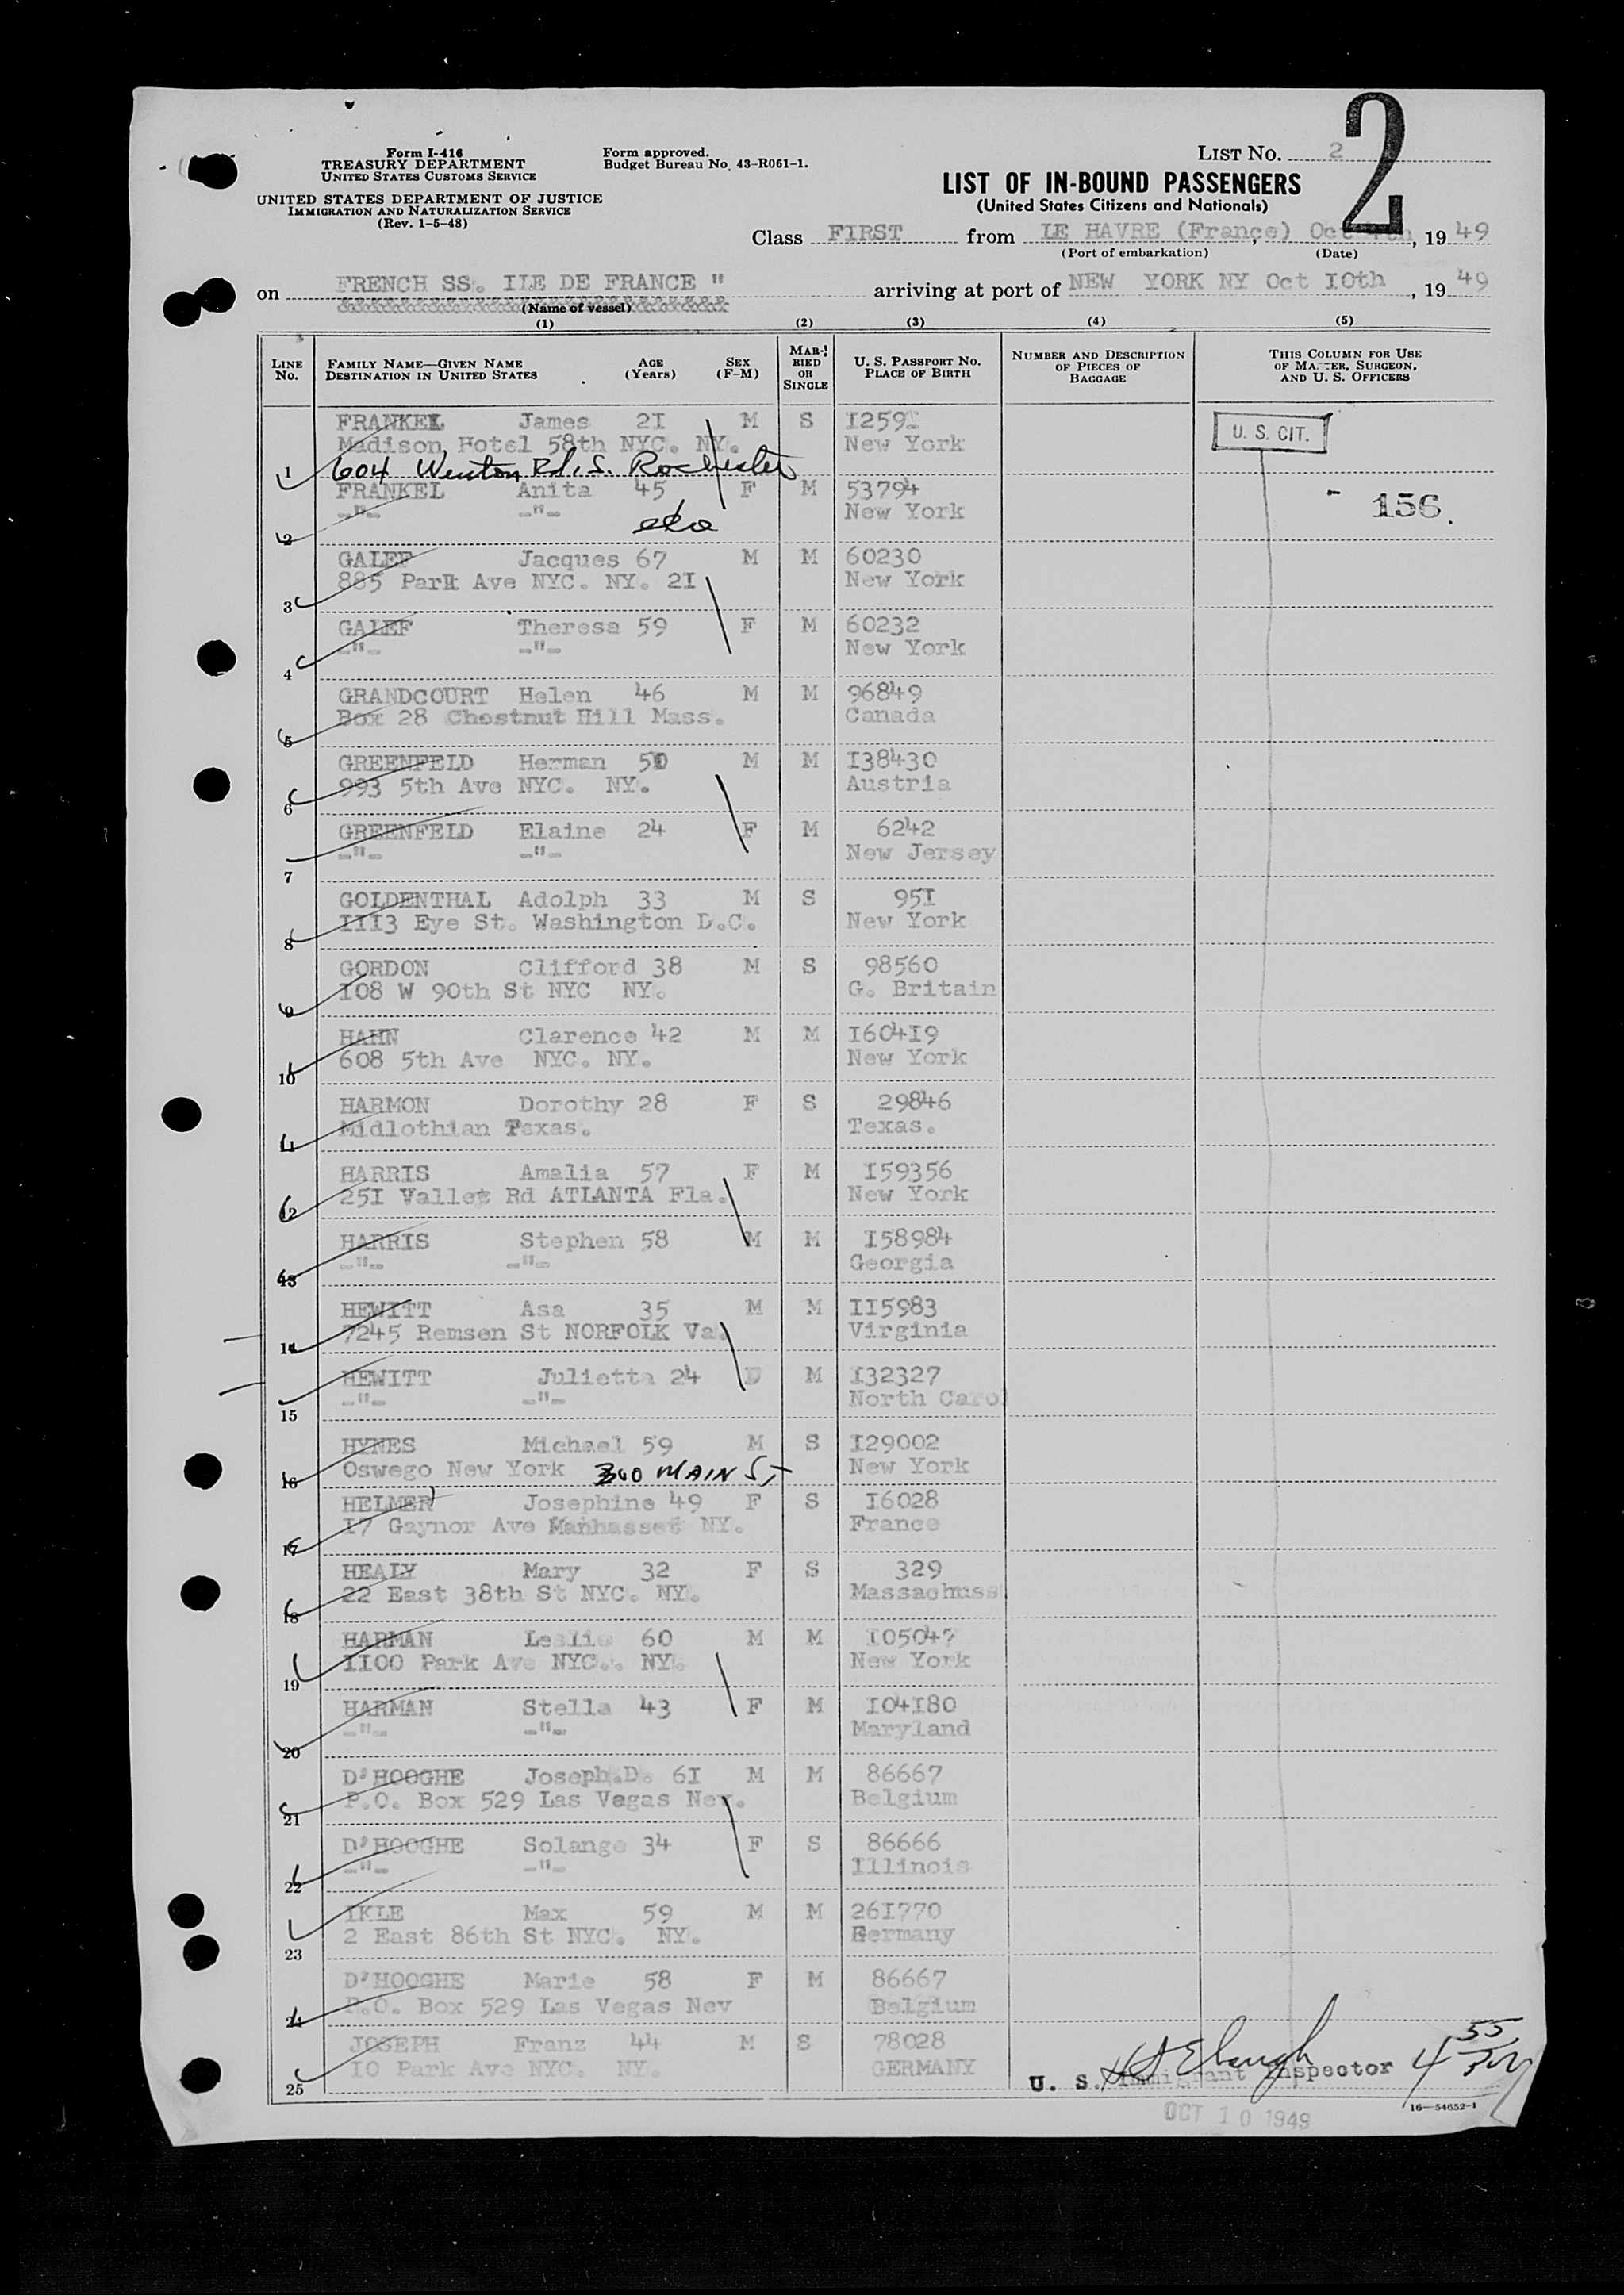 Form I-416
TREASURY DEPARTMENT
UNITED STATES CUSTOMS SERVICE
UNITED STATES DEPARTMENT OF JUSTICE
IMMIGRATION AND NATURALIZATION SERVICE
(Rev. 1-5-48)
Form approved.
Budget Bureau No. 43-R061-1.
LIST NO. 2
2
LIST OF IN-BOUND PASSENGERS
(United States Citizens and Nationals)
Class FIRST from LE HAVRE (France) Oct , 19 49
(Port of embarkation) (Date)
on FRENCH SS. ILE DE FRANCE " arriving at port of NEW YORK NY Oct I0th , 19 49
(Name of vessel)
(1) (2) (3) (4) (5)
LINE No.
FAMILY NAME—GIVEN NAME AGE SEX
DESTINATION IN UNITED STATES (Years) (F-M)
MARRIED OR SINGLE
U. S. PASSPORT NO.
PLACE OF BIRTH
NUMBER AND DESCRIPTION OF PIECES OF BAGGAGE
THIS COLUMN FOR USE OF MASTER, SURGEON, AND U. S. OFFICERS
FRANKEL James 2I M S I259I
Madison Hotel 58th NYC. NY. New York
U. S. CIT.
1 604 Winton Rd. S. Rochester
FRANKEL Anita 45 F M 53794
-"- -"- New York
- 156.
2
GALEF Jacques 67 M M 60230
885 Park Ave NYC. NY. 2I New York
3
GALEF Theresa 59 F M 60232
-"- -"- New York
4
GRANDCOURT Helen 46 M M 96849
Box 28 Chestnut Hill Mass. Canada
5
GREENFELD Herman 50 M M I38430
993 5th Ave NYC. NY. Austria
6
GREENFELD Elaine 24 F M 6242
-"- -"- New Jersey
7
GOLDENTHAL Adolph 33 M S 95I
III3 Eye St. Washington D.C. New York
8
GORDON Clifford 38 M S 98560
I08 W 90th St NYC NY. G. Britain
9
HAHN Clarence 42 M M I60419
608 5th Ave NYC. NY. New York
10
HARMON Dorothy 28 F S 29846
Midlothian Texas. Texas.
11
HARRIS Amalia 57 F M I59356
25I Valley Rd ATLANTA Fla. New York
12
HARRIS Stephen 58 M M I58984
-"- -"- Georgia
13
HEWITT Asa 35 M M II5983
7245 Remsen St NORFOLK Va. Virginia
14
HEWITT Julietta 24 M I32327
-"- -"- North Caro
15
HYNES Michael 59 M S I29002
Oswego New York 300 MAIN ST New York
16
HELMER Josephine 49 F S I6028
I7 Gaynor Ave Manhasset NY. France
17
HEALY Mary 32 F S 329
22 East 38th St NYC. NY. Massachuss
18
HARMAN Leslie 60 M M I05047
II00 Park Ave NYC. NY. New York
19
HARMAN Stella 43 F M I04I80
-"- -"- Maryland
20
D'HOOGHE Joseph.D. 6I M M 86667
P.O. Box 529 Las Vegas Nev. Belgium
21
D'HOOGHE Solange 34 F S 86666
-"- -"- Illinois
22
IKLE Max 59 M M 26I770
2 East 86th St NYC. NY. Germany
23
D'HOOGHE Marie 58 F M 86667
P.O. Box 529 Las Vegas Nev Belgium
24
JOSEPH Franz 44 M S 78028
I0 Park Ave NYC. NY. GERMANY
25
U. S. Immigrant Inspector
OCT 10 1949
16—54652-1